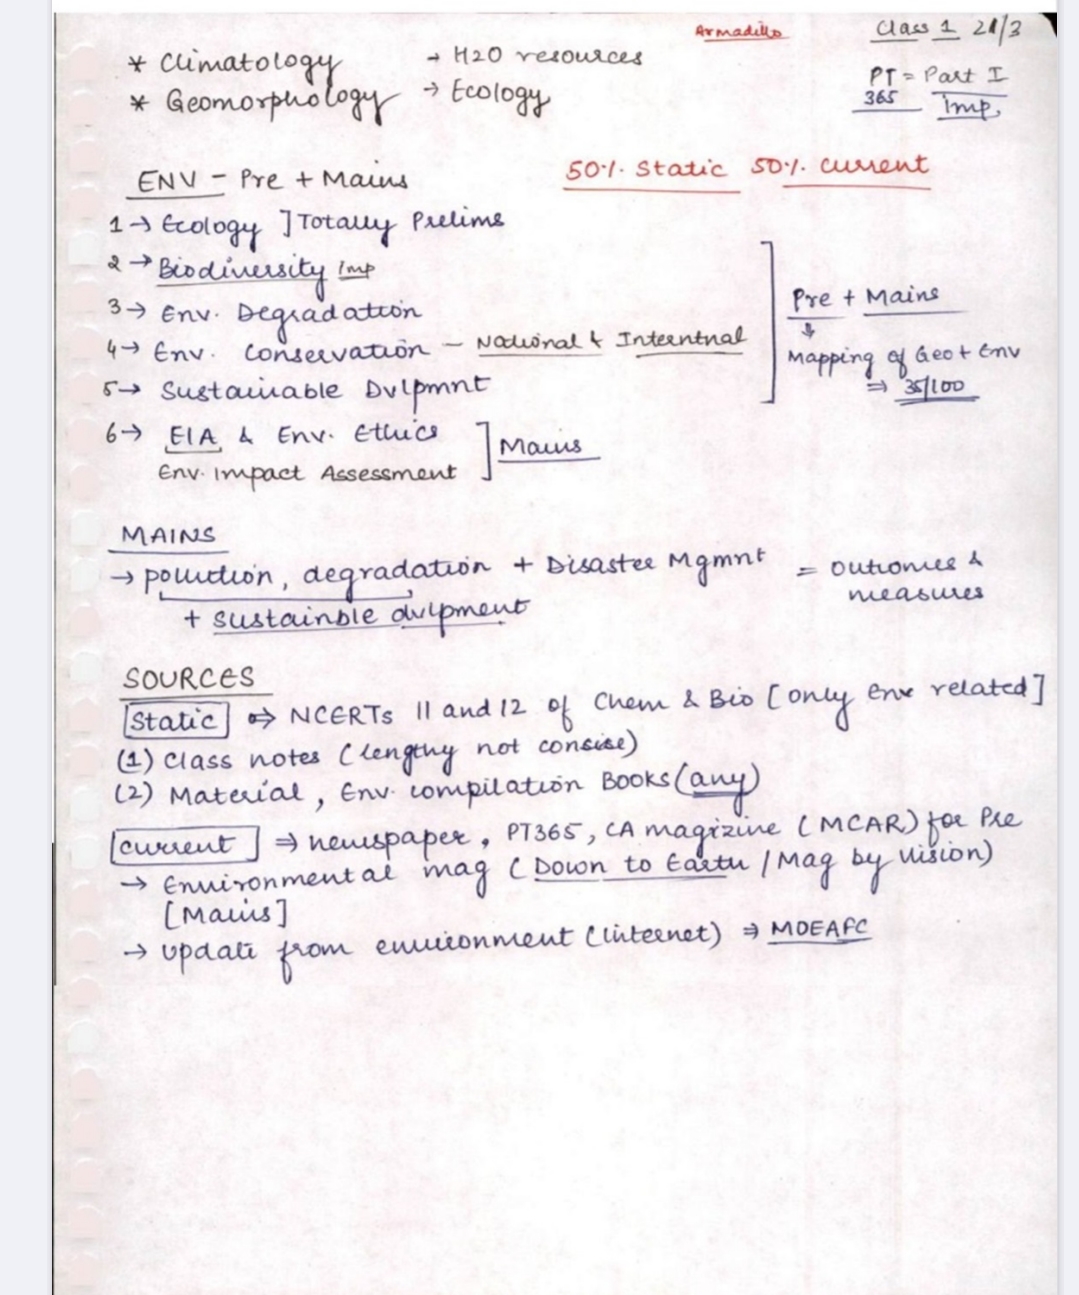 Armadillo
Class 1 21/3
* Climatology → H2O resources
* Geomorphology → Ecology
PT = Part I
365 Imp.
ENV - Pre + Mains
50% Static 50% Current
1→ Ecology ] Totally Prelims
2→ Biodiversity Imp
3→ Env. Degradation
4→ Env. Conservation - National & Interntnal
5→ Sustainable Dvlpmnt
Pre + Mains
↓
Mapping of Geo + Env
⇒ 35/100
6→ EIA & Env. Ethics
Env. Impact Assessment
] Mains
MAINS
→ pollution, degradation + Disaster Mgmnt = outcomes &
measures
+ sustainble dvlpment
SOURCES
Static ⇒ NCERTs 11 and 12 of Chem & Bio [only env related]
(1) Class notes (lengthy not consise)
(2) Material, Env. compilation Books (any)
Current ⇒ newspaper, PT365, CA magizine (MCAR) for Pre
→ Environmental mag (Down to Earth / Mag by Vision)
[Mains]
→ update from environment (internet) ⇒ MOEAFC